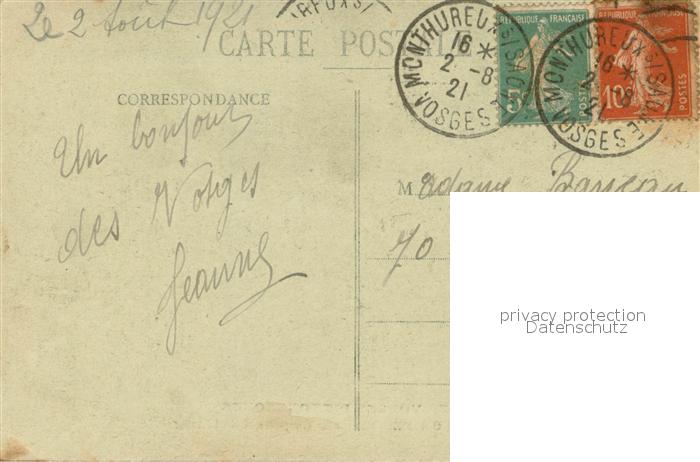 Le 2 Août 1921
CARTE POSTALE
RÉPUBLIQUE FRANÇAISE
RÉPUBLIQUE FRANÇAISE
5c
POSTES
10c
POSTES
MONTHUREUX s/ SAONE
16 *
2 - 8
21
VOSGES
MONTHUREUX s/ SAONE
16 *
2 - 8
21
VOSGES
CORRESPONDANCE
Un bonjour
des Vosges
Jeanne
Madame
70
privacy protection
Datenschutz